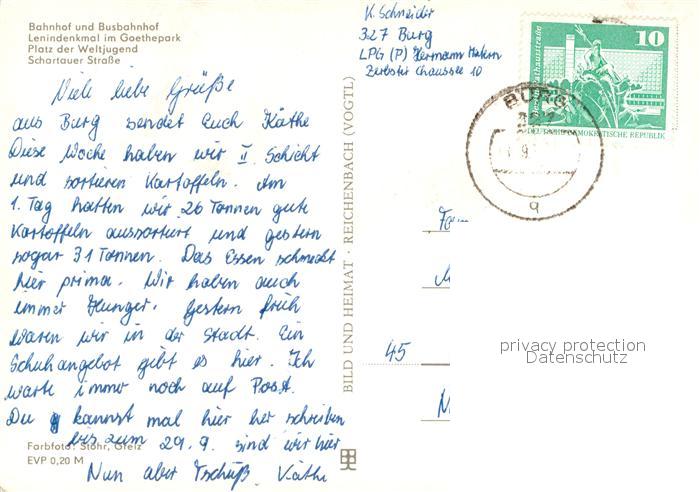 Bahnhof und Busbahnhof
Lenindenkmal im Goethepark
Platz der Weltjugend
Schartauer Straße
Viele liebe Grüße
aus Burg sendet Euch Käthe
Diese Woche haben wir II. Schicht
und sortieren Kartoffeln. Am
1. Tag hatten wir 26 Tonnen gute
Kartoffeln aussortiert und gestern
sogar 31 Tonnen. Das Essen schmeckt
hier prima. Wir haben auch
immer Hunger. Gestern früh
waren wir in der Stadt. Ein
Schuhangebot gibt es hier. Ich
warte immer noch auf Post.
Du kannst mal hier her schreiben
bis zum 29.9. sind wir hier
Farbfoto: Stöhr, Greiz
EVP 0,20 M
Nun aber Tschüß. Käthe
BILD UND HEIMAT · REICHENBACH (VOGTL)
K. Schneider
327 Burg
LPG (P) Hermann Matern
Zerbster Chaussee 10
10
DEUTSCHE DEMOKRATISCHE REPUBLIK
BURG
q
45
privacy protection
Datenschutz